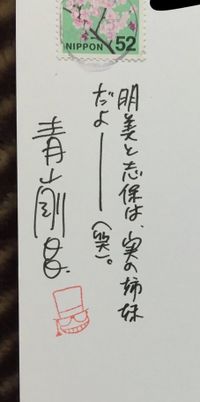 NIPPON 52
明美と志保は、実の姉妹
だよ――(笑)。
青山剛昌